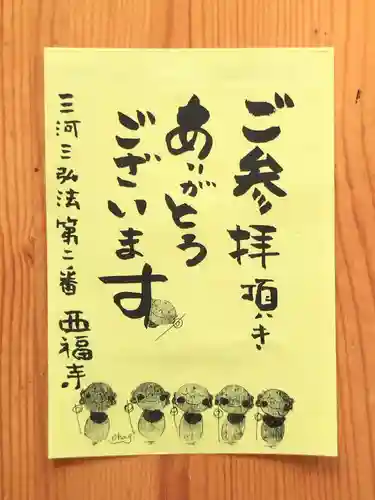 ご参拝頂き
ありがとう
ございます
三河三弘法第二番 西福寺